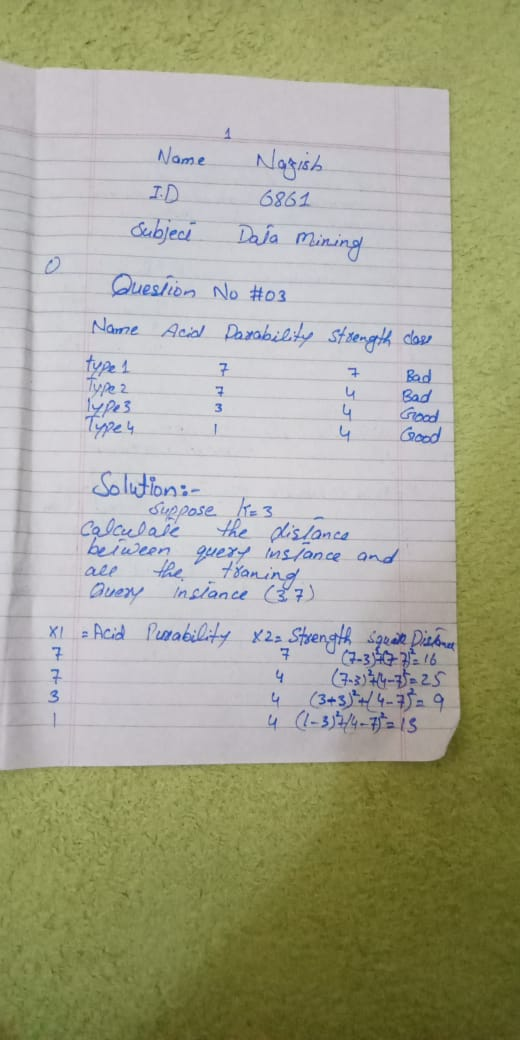 1
Name Nazish
I.D 6861
Subject Data Mining
Question No #03
Name Acid Durability Strength class
type 1 7 7 Bad
Type 2 7 4 Bad
Type3 3 4 Good
Type 4 1 4 Good
Solution:-
Suppose K=3
Calculate the distance
between query instance and
all the traning
Query instance (3,7)
X1 = Acid Durability X2= Strength Square Distance
7 7 (7-3)²+(7-7)²= 16
7 4 (7-3)²+(4-7)²= 25
3 4 (3+3)²+(4-7)²= 9
1 4 (1-3)²+(4-7)²= 13